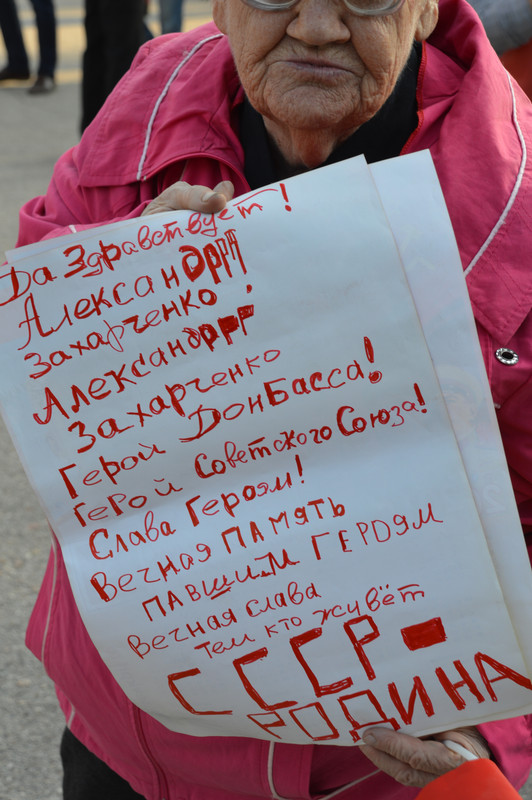 Да Здравствует!
Александра
Захарченко!
Александр
Захарченко
Герой ДонБасса!
Герой Советского Союза!
Слава Героям!
Вечная ПАМЯТЬ
ПАВШИМ ГЕРОЯМ
Вечная слава
тем кто живёт
СССР -
РОДИНА